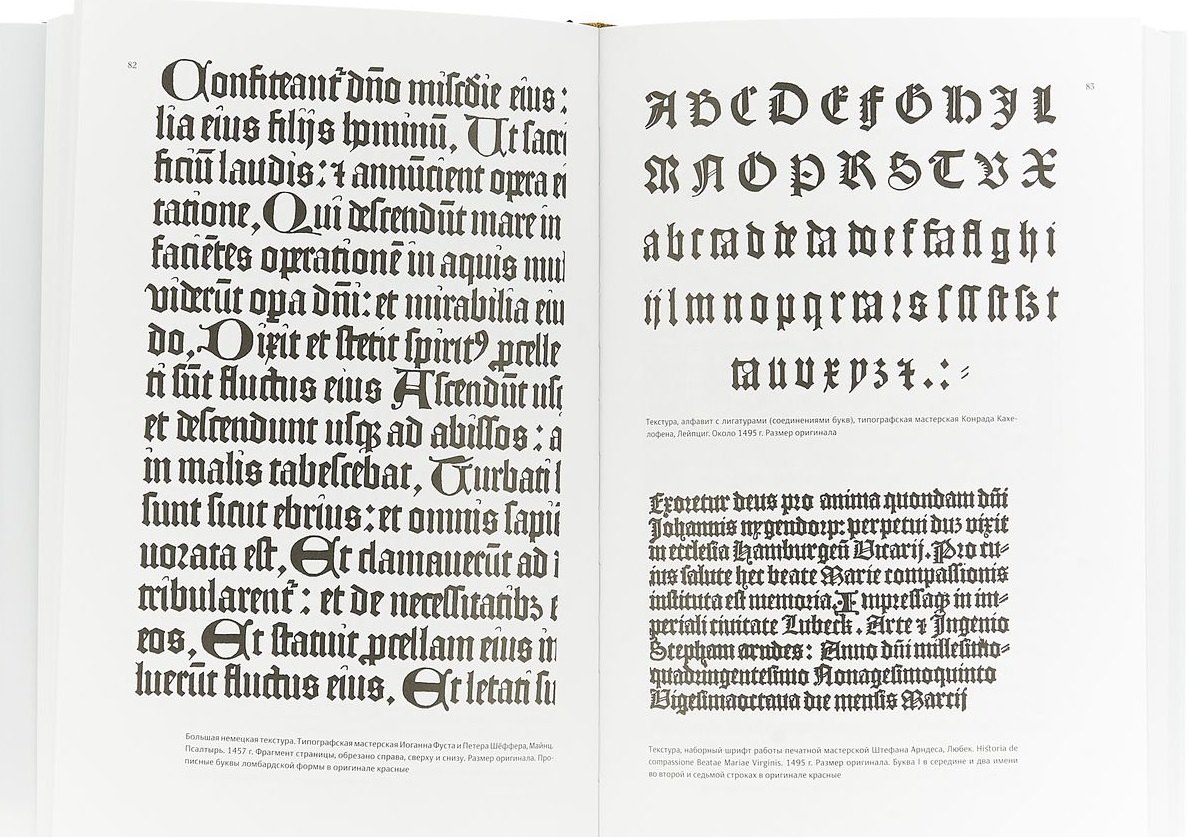 82
Confiteant᷑ dn̄o misc̄die eius:
lia eius filijs hominū, Ut sacri
ficiū laudis: ⁊ annūcient opera ei
ratione, Qui descendūt mare in
faciētes operationē in aquis mul
viderūt oꝑa dn̄i: et mirabilia eiu
do, Dixit et stetit spiritꝰ ꝓcelle
ti sūt fluctus eius Ascendūt usq
et descendunt usqꝫ ad abissos: a
in malis tabescebat, Turbati
sunt sicut ebrius: et omnis sapiē
uorata est, Et clamauerūt ad
tribularent᷑: et de necessitatibꝫ e
eos, Et statuit ꝓcellam eius in
luerūt fluctus eius, Et letati su
Большая немецкая текстура. Типографская мастерская Иоганна Фуста и Петера Шёффера, Майнц.
Псалтырь. 1457 г. Фрагмент страницы, обрезано справа, сверху и снизу. Размер оригинала. Про-
писные буквы ломбардской формы в оригинале красные
83
A B C D E F G H J L
M N O P R S T V X
a b c d e f g h i
ij l m n o p q r s ſ t
u v x y z ⁊ . :
Текстура, алфавит с лигатурами (соединениями букв), типографская мастерская Конрада Кахе-
лофена, Лейпциг. Около 1495 г. Размер оригинала
Exoretur deus pro anima quondam dn̄i
Johannis perpetui vixit
in ecclesia Hamburgeñ Vicarij. Pro cu-
ius salute hec beate Marie compassionis
instituta est memoria, Impressaqꝫ in im-
periali ciuitate Lubeck. Arte ⁊ Jngenio
Stephani arndes: Anno dn̄i millesimo-
quadringentesimo Nonagesimoquinto
Vigesimaoctaua die mensis Marcij
Текстура, наборный шрифт работы печатной мастерской Штефана Арндеса, Любек. Historia de
compassione Beatae Mariae Virginis. 1495 г. Размер оригинала. Буква I в середине и два имени
во второй и седьмой строках в оригинале красные